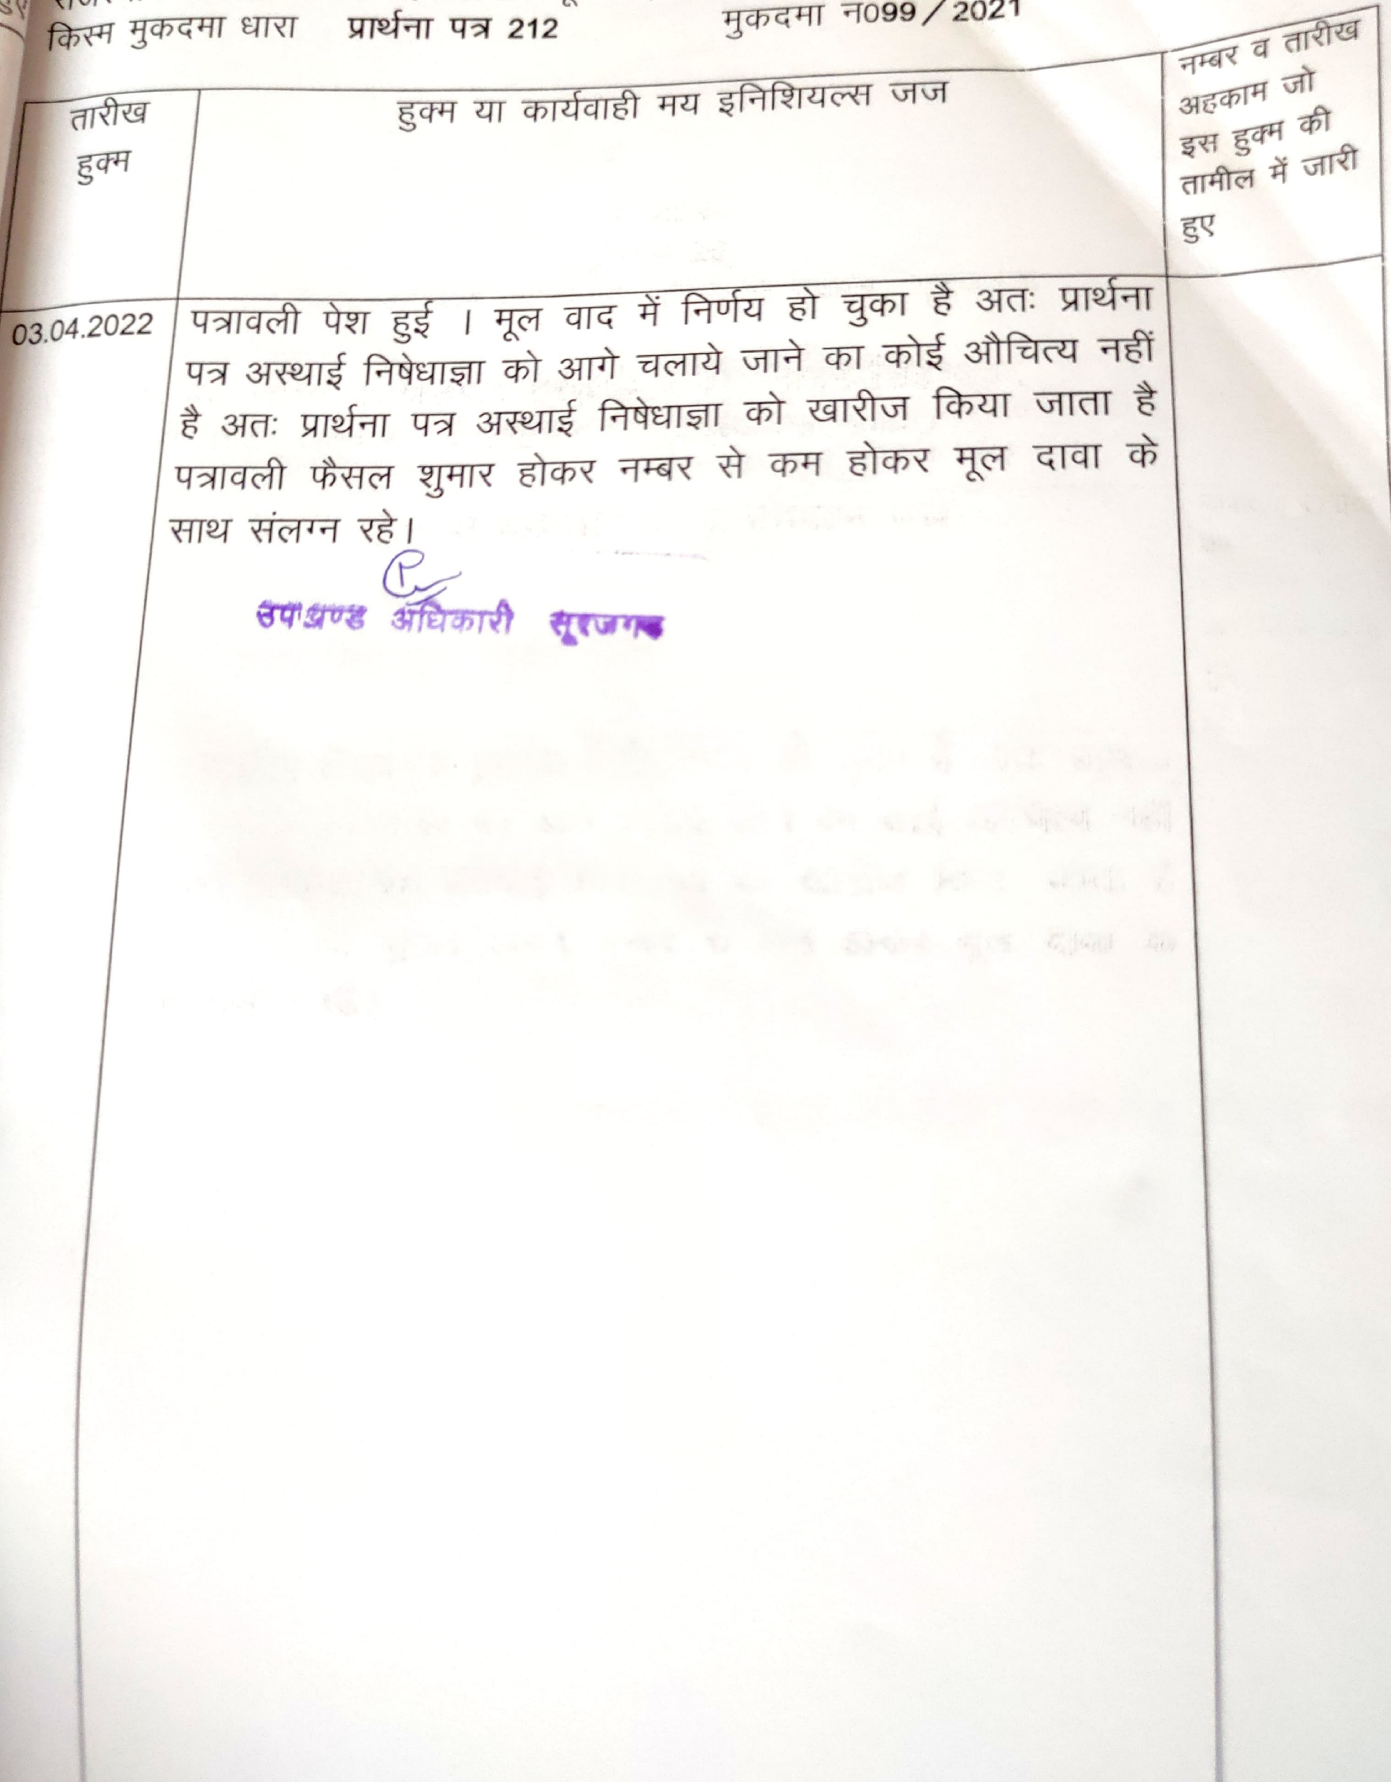 किस्म मुकदमा धारा प्रार्थना पत्र 212 मुकदमा न099/2021
तारीख
हुक्म
हुक्म या कार्यवाही मय इनिशियल्स जज
नम्बर व तारीख
अहकाम जो
इस हुक्म की
तामील में जारी
हुए
03.04.2022
पत्रावली पेश हुई । मूल वाद में निर्णय हो चुका है अतः प्रार्थना
पत्र अस्थाई निषेधाज्ञा को आगे चलाये जाने का कोई औचित्य नहीं
है अतः प्रार्थना पत्र अस्थाई निषेधाज्ञा को खारीज किया जाता है
पत्रावली फैसल शुमार होकर नम्बर से कम होकर मूल दावा के
साथ संलग्न रहे।
उपखण्ड अधिकारी